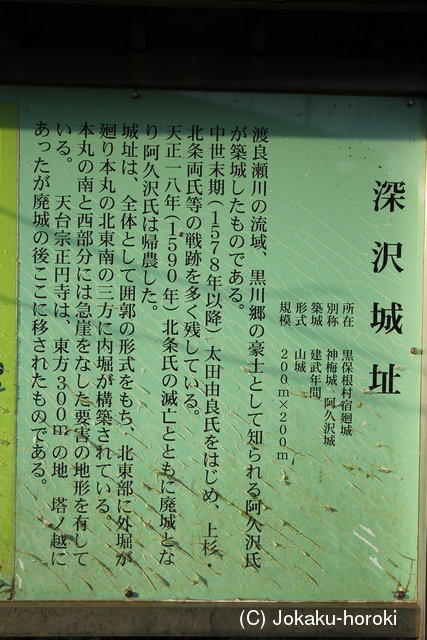 深沢城址
所在　黒保根村宿廻城
別称　神梅城　阿久沢城
築城　建武年間
形式　山城
規模　200m×200m
渡良瀬川の流域、黒川郷の豪士として知られる阿久沢氏
が築城したものである。
中世末期(1578年以降)太田由良氏をはじめ、上杉・
北条両氏等の戦跡を多く残している。
天正一八年(1590年)北条氏の滅亡とともに廃城とな
り阿久沢氏は帰農した。
城址は、全体として囲郭の形式をもち、北東部に外堀が
廻り本丸の北東南の三方に内堀が構築されている。
本丸の南と西部分には急崖をなした要害の地形を有して
いる。　天台宗正円寺は、東方300mの地　塔ノ越に
あったが廃城の後ここに移されたものである。
(C) Jokaku-horoki